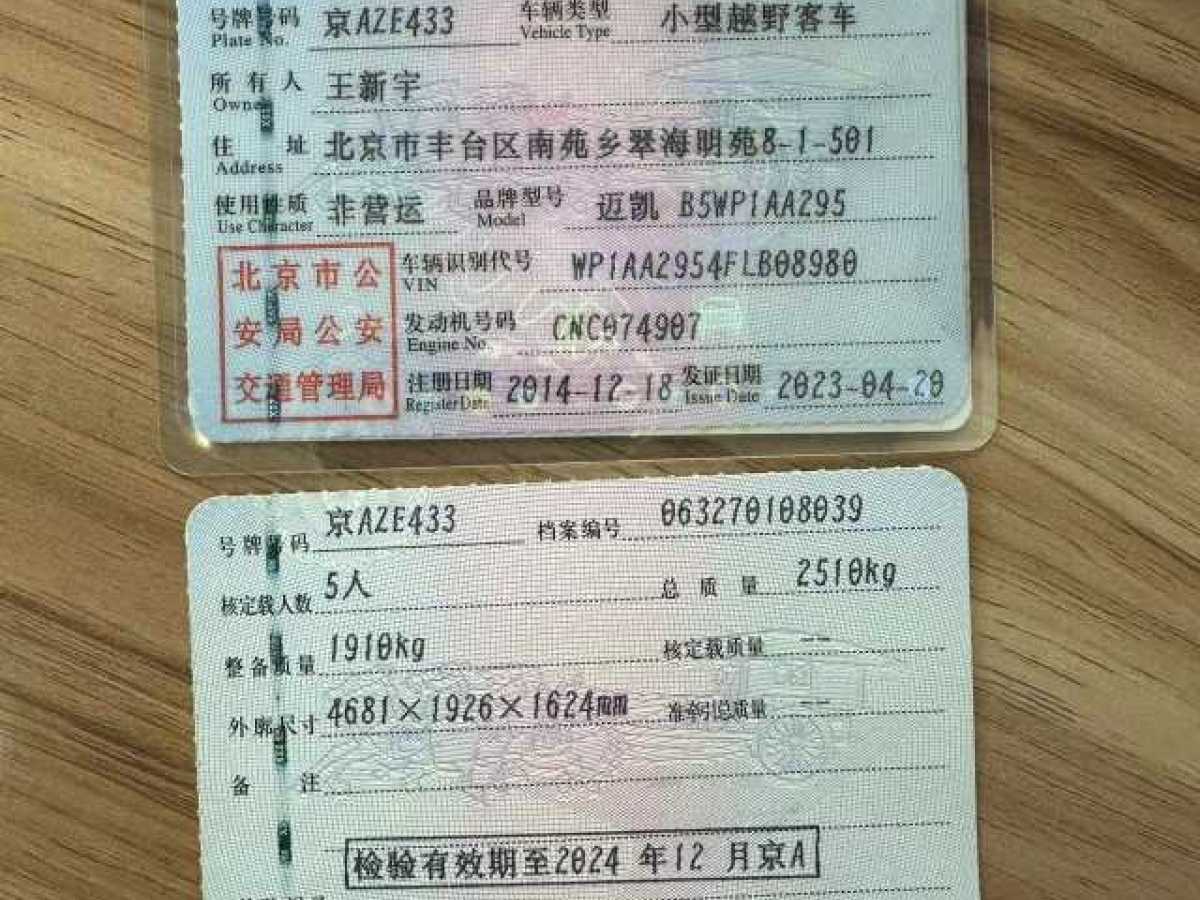 号牌号码 京AZE433 车辆类型 小型越野客车
Plate No. Vehicle Type
所有人 王新宇
Owner
住址 北京市丰台区南苑乡翠海明苑8-1-501
Address
使用性质 非营运 品牌型号 迈凯 B5WP1AA295
Use Character Model
北京市公
安局公安
交通管理局
车辆识别代号 WP1AA2954FLB08980
VIN
发动机号码 CNC074907
Engine No.
注册日期 2014-12-18 发证日期 2023-04-20
Register Date Issue Date
号牌号码 京AZE433 档案编号 063270108039
核定载人数 5人 总质量 2510kg
整备质量 1910kg 核定载质量 --
外廓尺寸 4681×1926×1624mm 准牵引总质量 --
备注
检验有效期至2024 年12 月京A